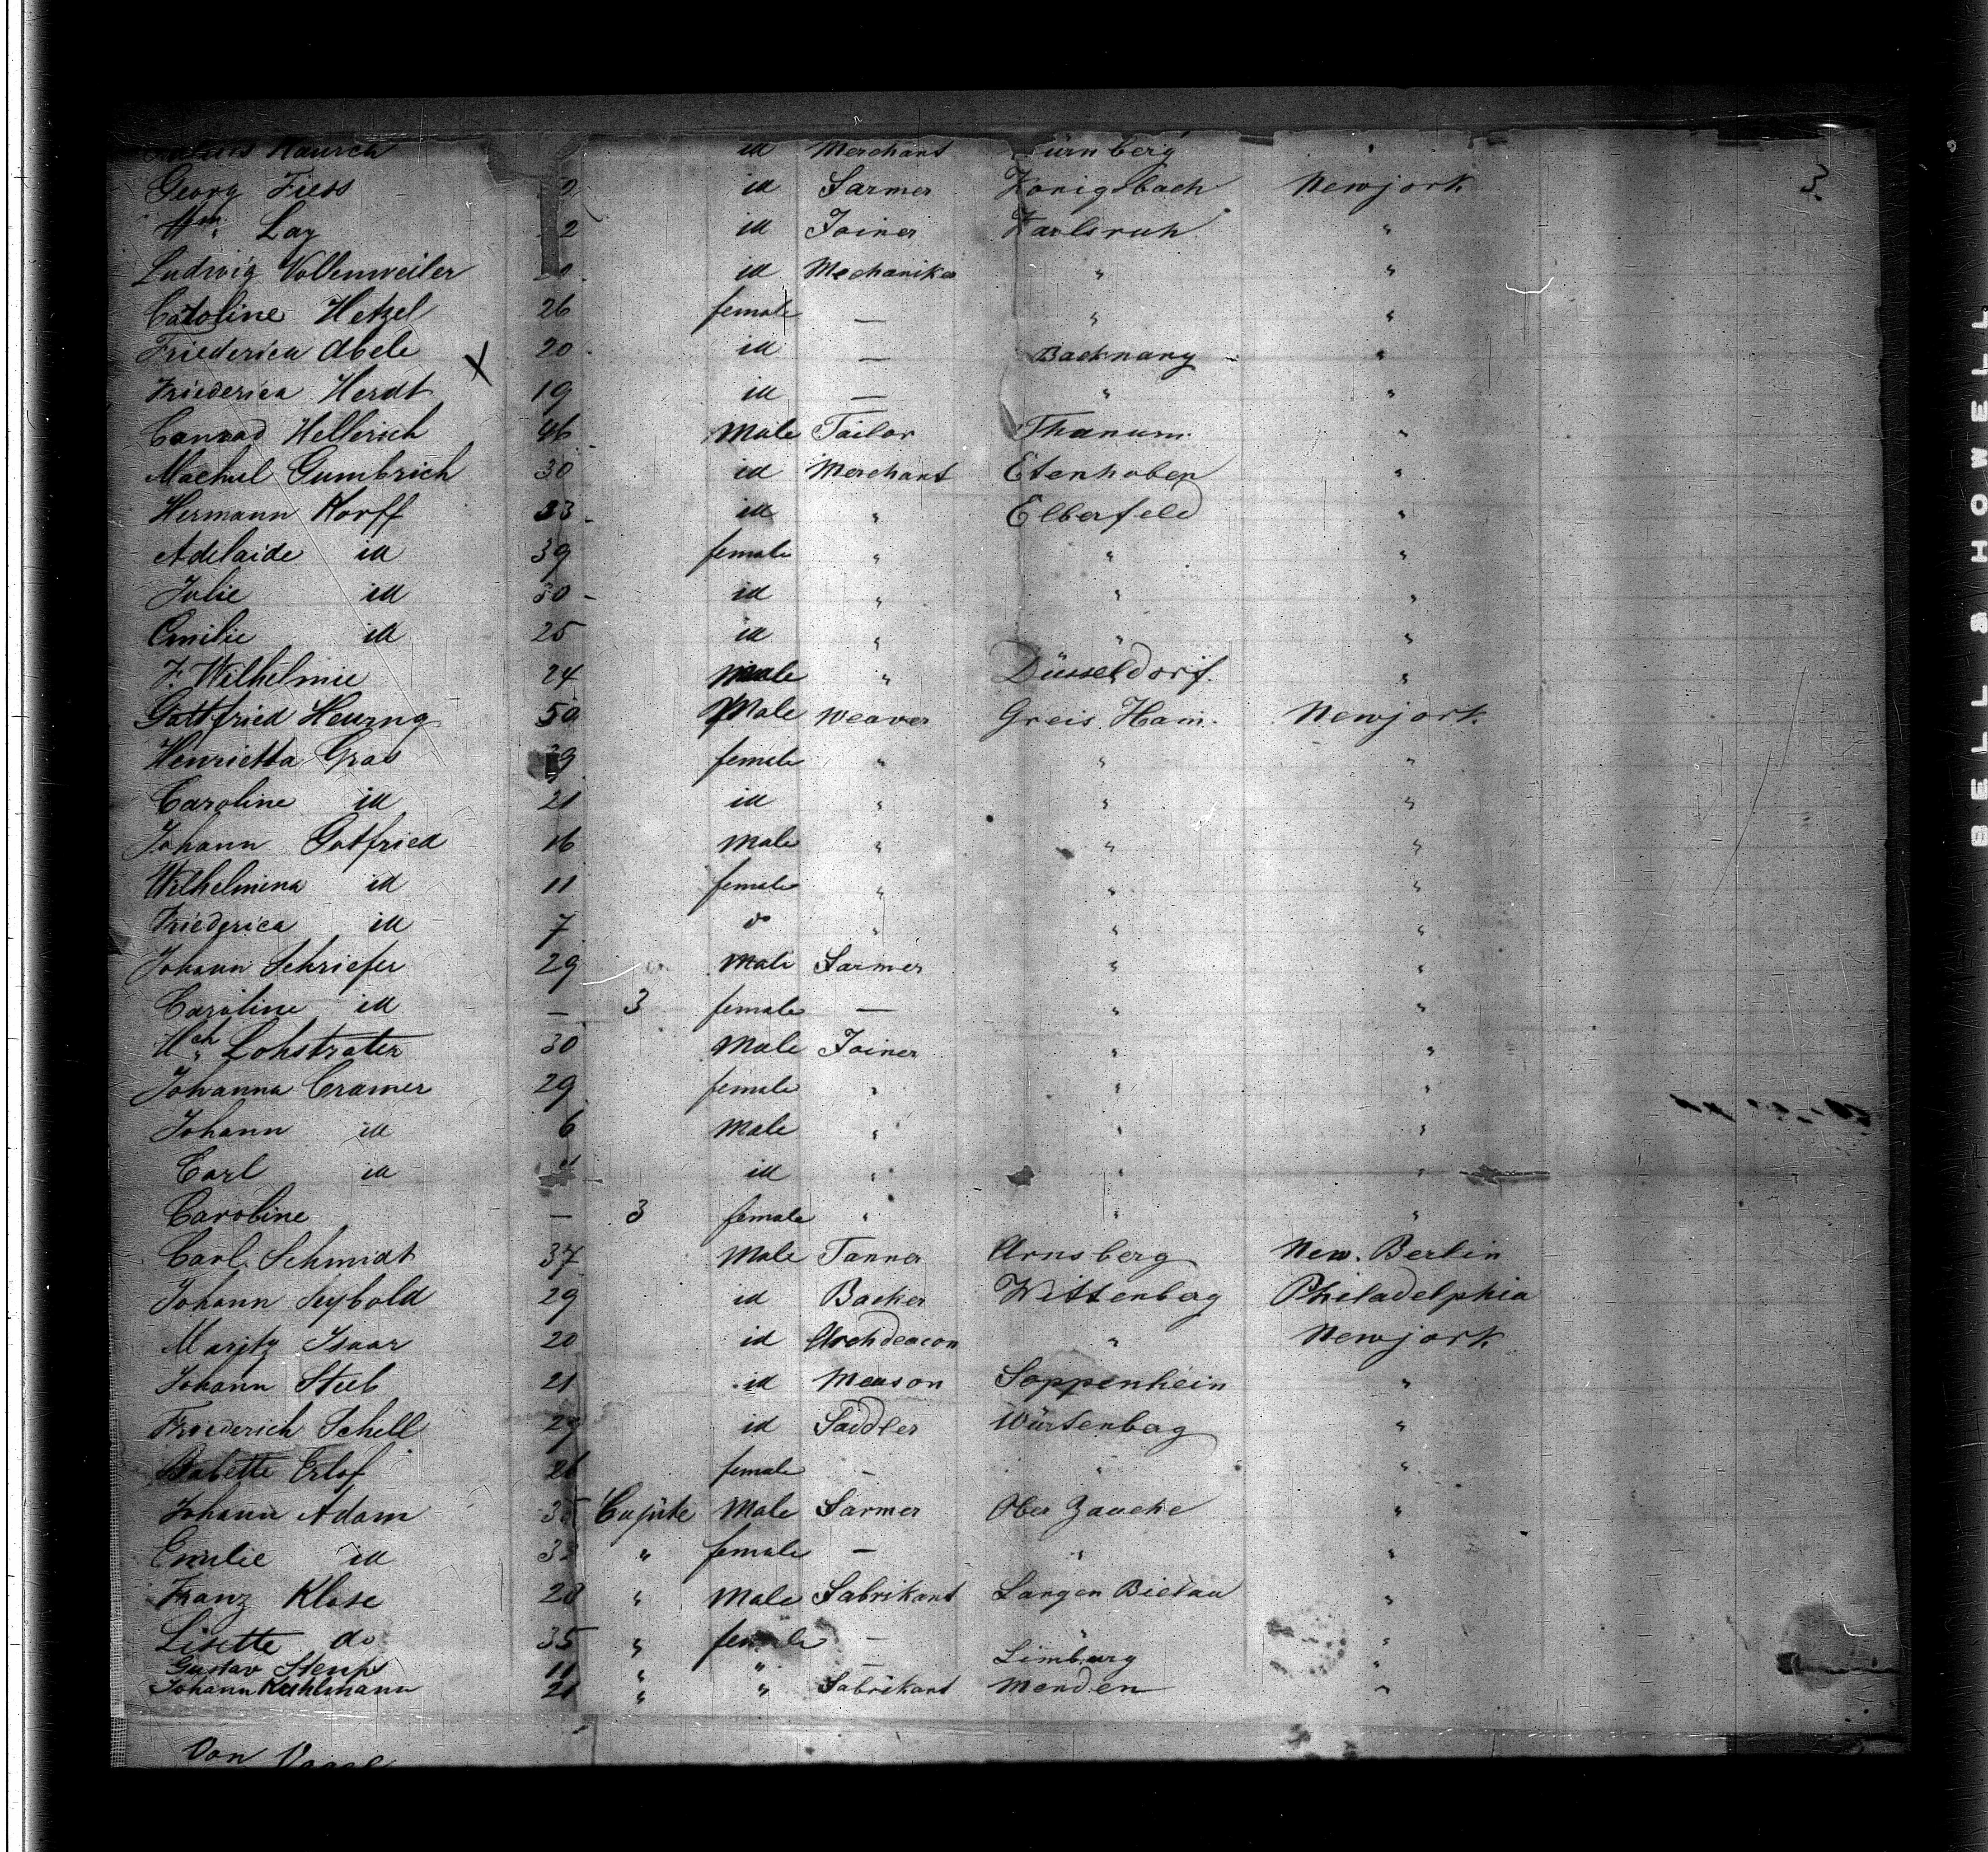 Hausch id Merchant Nürnberg "
Georg Fiess 2 id Farmer Konigsbach Newjork 3
Wm. Lay 2 id Joiner Karlsruh "
Ludwig Vollenweiler id Mechaniker " "
Catoline Hetzel 26 female — " "
Friederica Abele X 20 id — Backnang "
Friederica Herdt 19 id — " "
Conrad Hellerich 46 Male Tailor Thanum "
Machul Gumbrich 30 id Merchant Etenhoben "
Hermann Korff 33 id " Elberfeld "
Adelaide id 39 female " " "
Julie id 30 id " " "
Emilie id 25 id " " "
F. Wilhelmie 24 Male " Düsseldorf "
Gottfried Heurng 50 Male weaver Greis Ham. Newjork
Henrietta Gras 39 female " " "
Caroline id 21 id " " "
Johann Gotfried 16 Male " " "
Wilhelmina id 11 female " " "
Friederica id 7 do " " "
Johann Schriefer 29 Male Farmer " "
Caroline id — 3 female — " "
Hch. Lohstrater 30 Male Joiner " "
Johanna Cramer 29 female " " "
Johann id 6 Male " " "
Carl id id " " "
Caroline — 3 female " " "
Carl Schmidt 37 Male Tanner Arnsberg New. Berlin
Johann Seybold 29 id Backer Wittenberg Philadelphia
Moritz Isaar 20 id Archdeacon " Newjork
Johann Steeb 21 id Meason Soppenhein "
Friederich Schell 29 id Saddler Würtenberg "
Babette Erlof 26 female — " "
Johann Adam 35 Cajüte Male Farmer Ober Zauche "
Emilie id 32 " female — " "
Franz Klose 28 " Male Fabrikant Langen Bielau "
Lisette do 35 " female — " "
Gustav Stenps 11 " " — Limburg "
Johann Kuhlmann 21 " " Fabrikant Menden "
Von
BELL & HOWELL